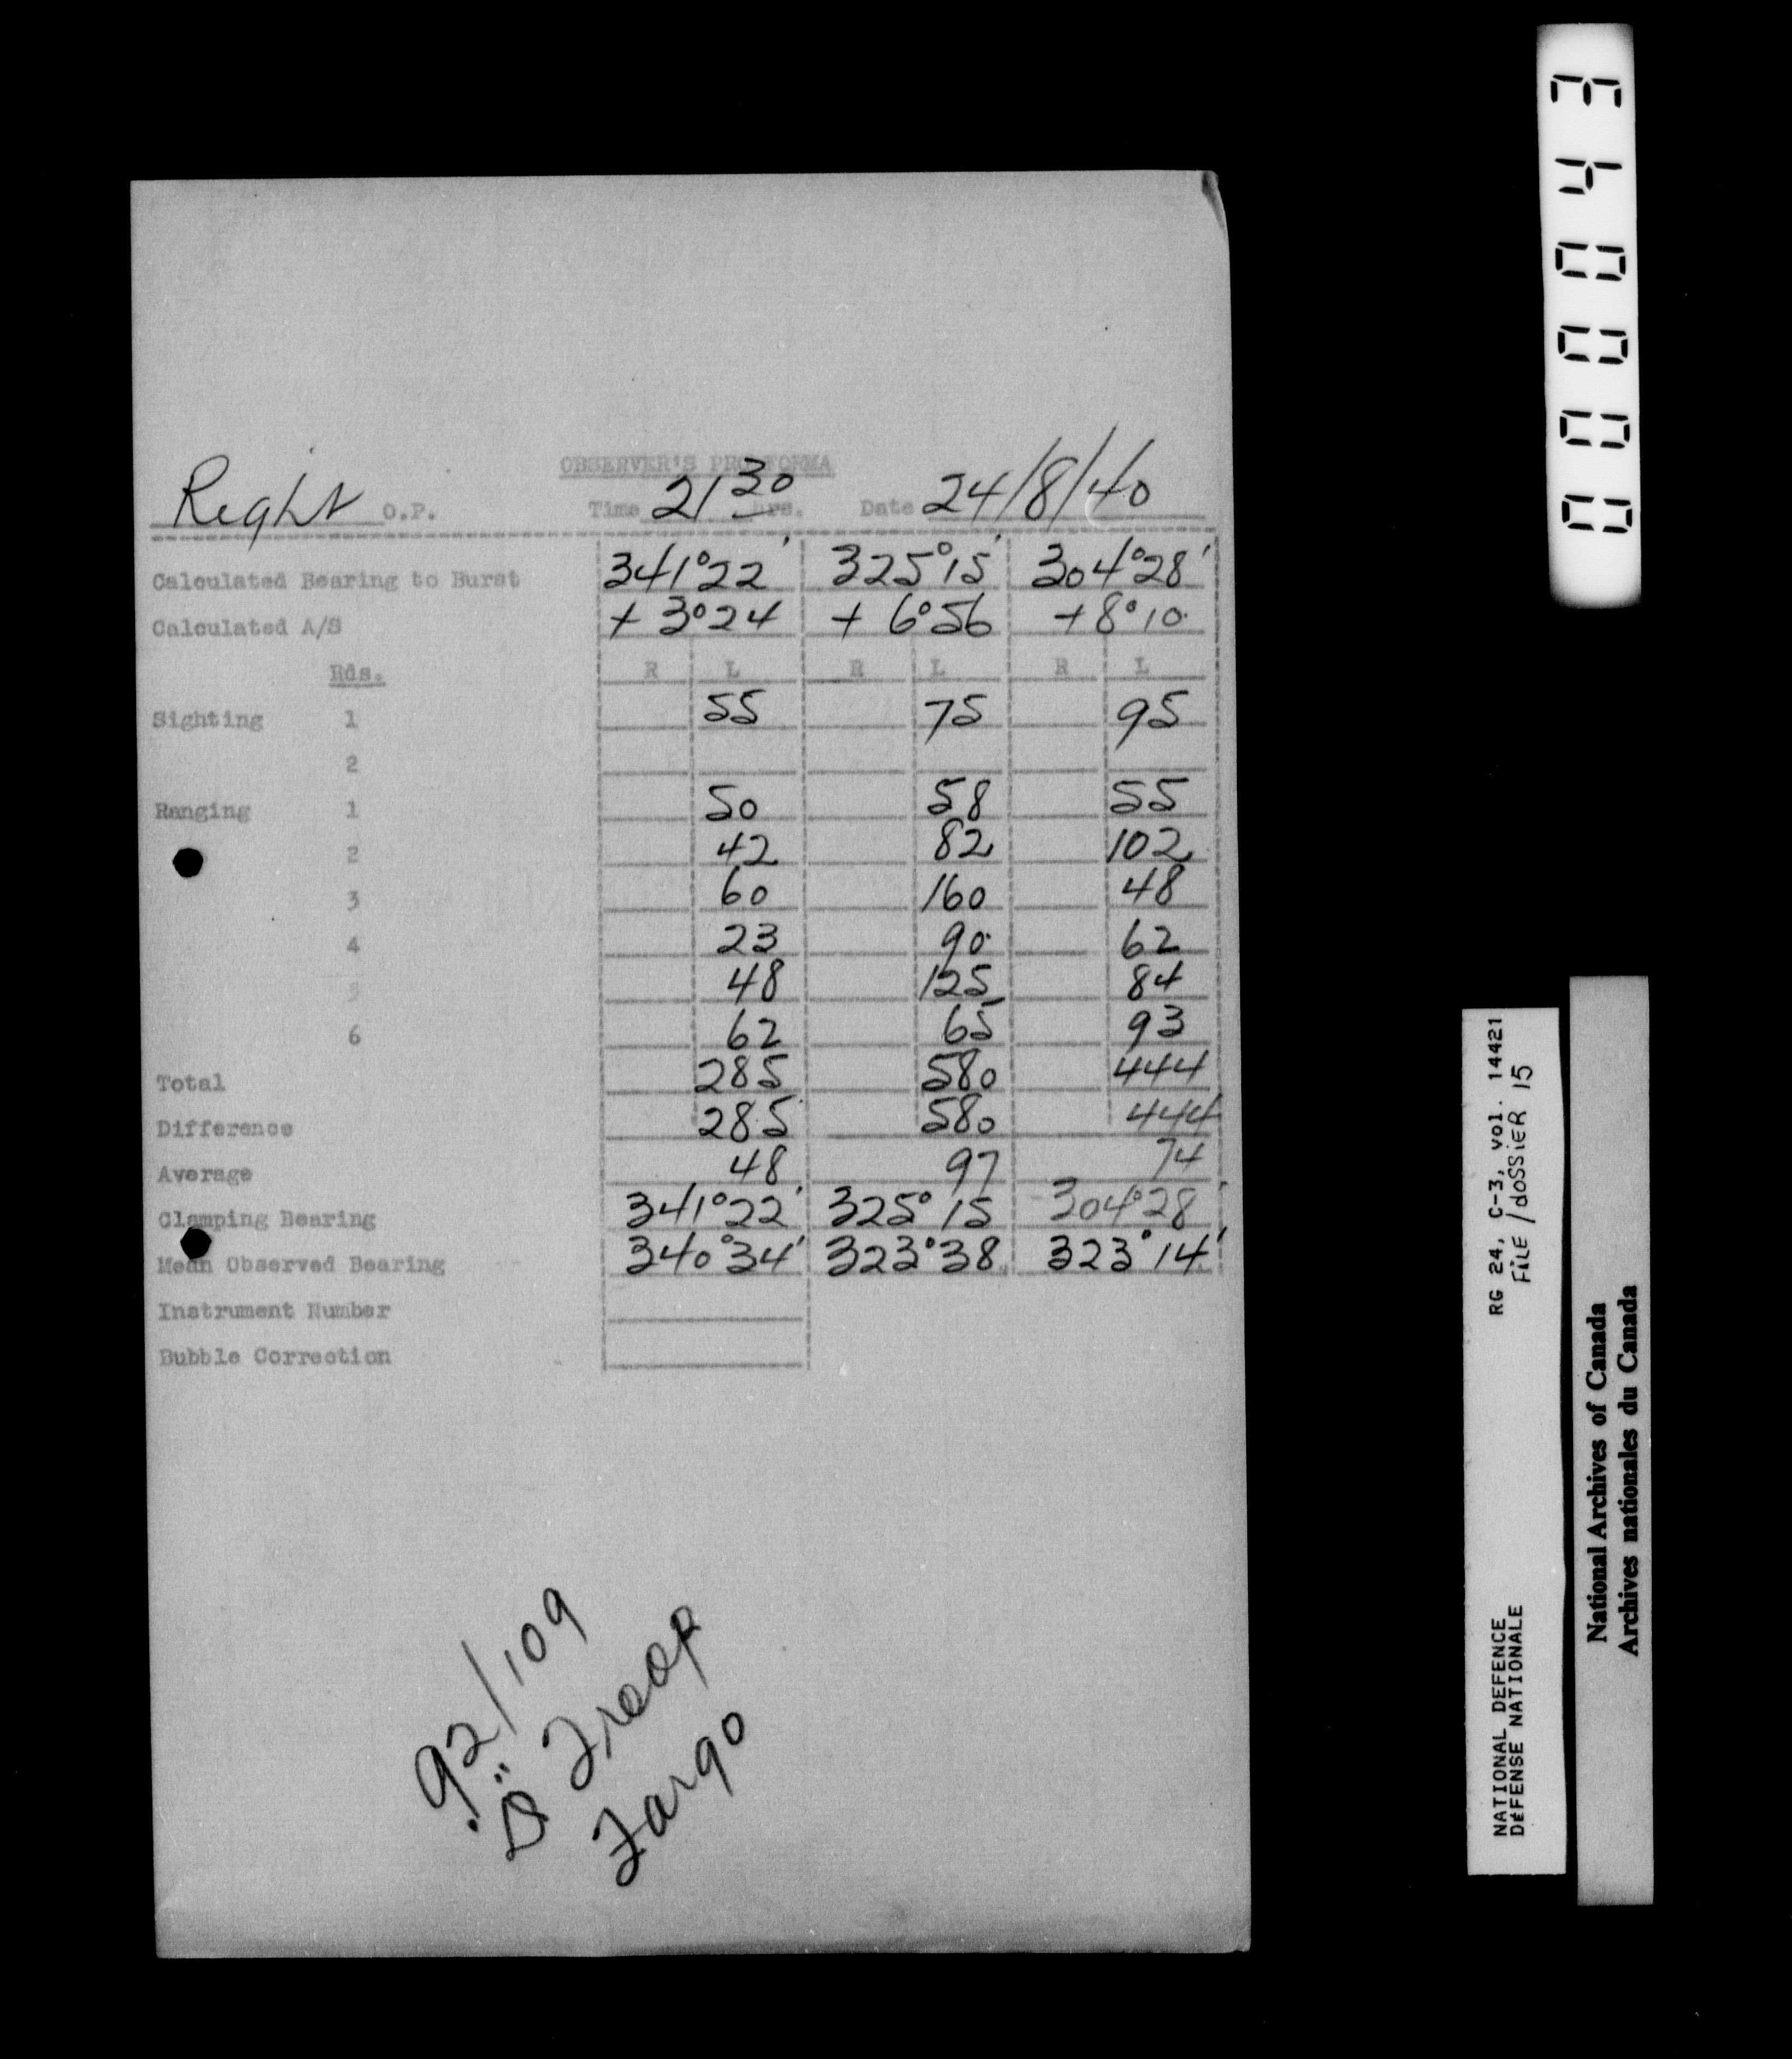 OBSERVER'S PRO FORMA
Right O.P. Time 21 30 hrs. Date 24/8/40
Calculated Bearing to Burst 341°22' 325°15' 304°28'
Calculated A/S + 3°24 + 6°56 + 8°10
Rds. R L R L R L
Sighting 1 55 75 95
2
Ranging 1 50 58 55
2 42 82 102
3 60 160 48
4 23 90 62
5 48 125 84
6 62 65 93
Total 285 580 444
Difference 285 580 444
Average 48 97 74
Clamping Bearing 341°22' 325°15 304°28'
Mean Observed Bearing 340°34' 323°38 323°14'
Instrument Number
Bubble Correction
92/109
"D" Troop
Fargo
000043
RG 24, C-3, vol. 14421
FILE / dOSSIER 15
NATIONAL DEFENCE
DÉFENSE NATIONALE
National Archives of Canada
Archives nationales du Canada